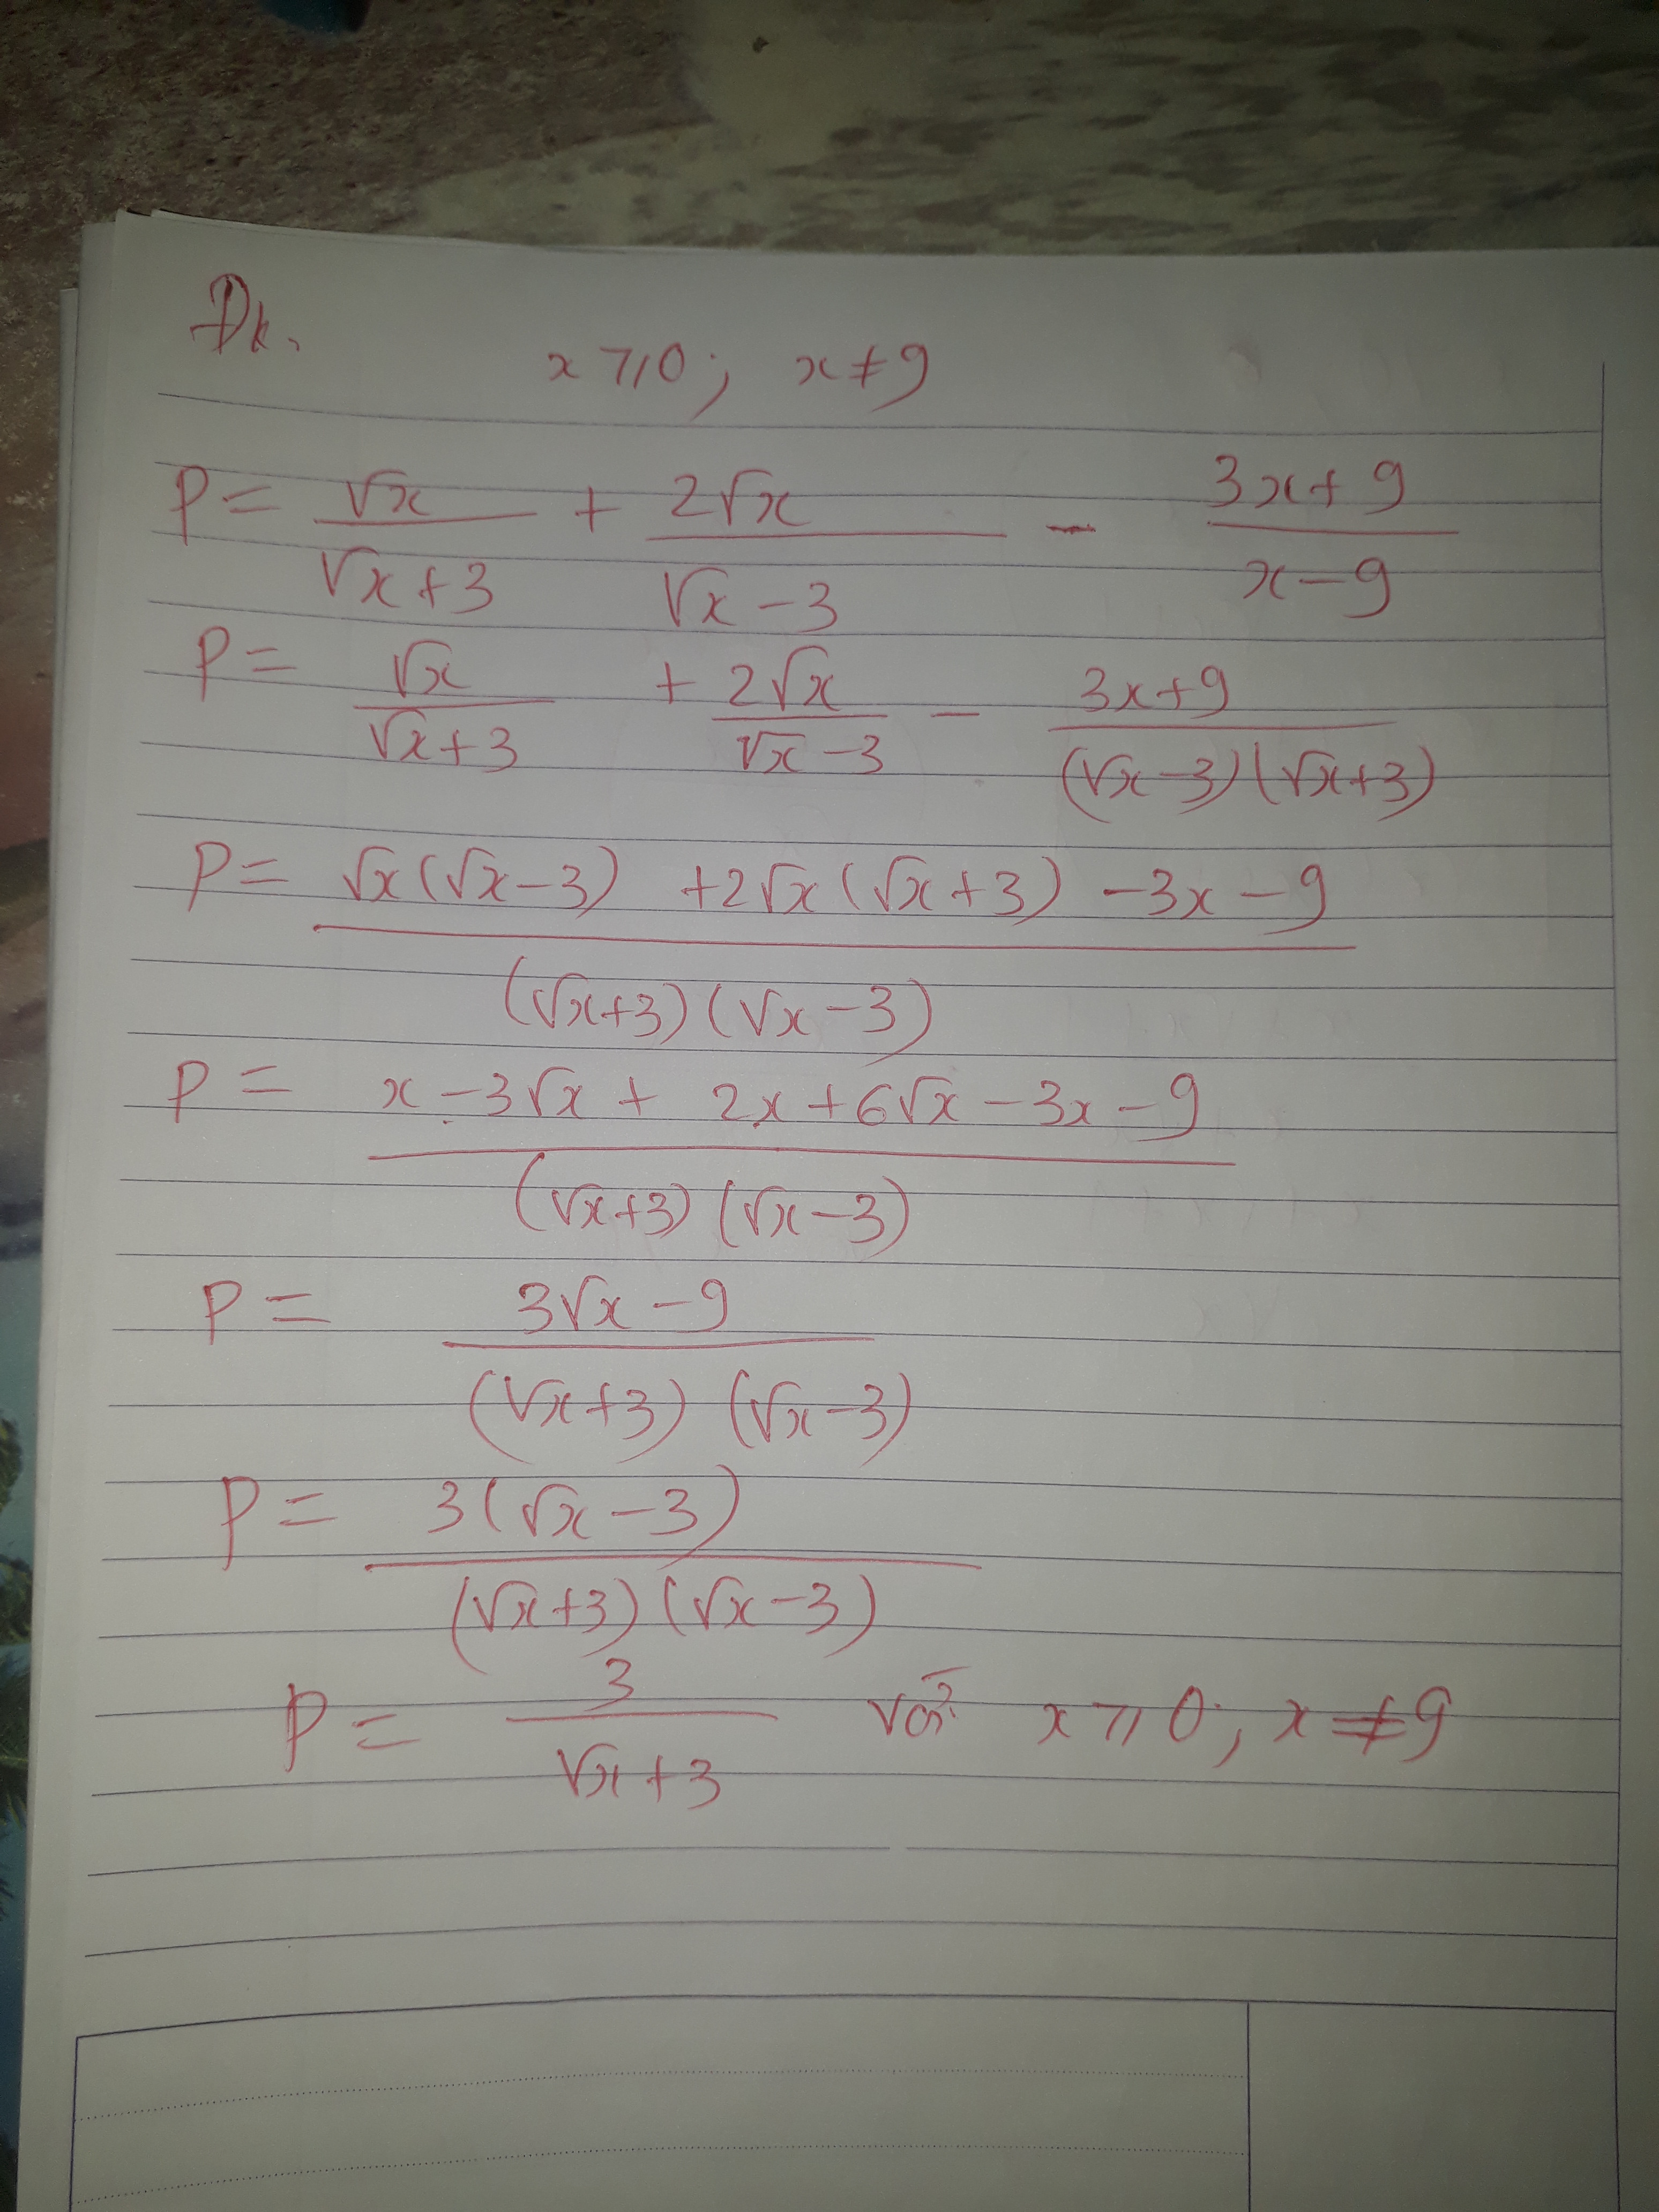 Đk. x ⩾ 0; x ≠ 9
P = √x/(√x+3) + 2√x/(√x-3) - (3x+9)/(x-9)
P = √x/(√x+3) + 2√x/(√x-3) - (3x+9)/((√x-3)(√x+3))
P = (√x(√x-3) +2√x(√x+3) -3x-9)/((√x+3)(√x-3))
P = (x-3√x + 2x+6√x-3x-9)/((√x+3)(√x-3))
P = (3√x-9)/((√x+3)(√x-3))
P = (3(√x-3))/((√x+3)(√x-3))
P = 3/(√x+3) với x ⩾ 0; x ≠ 9